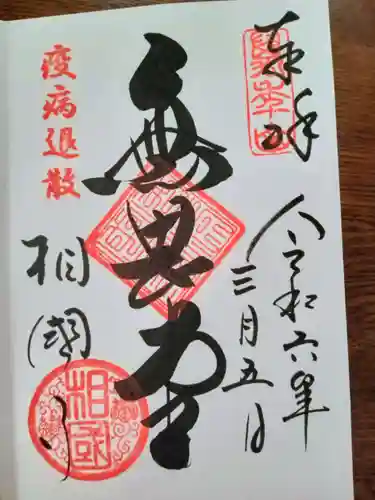 奉拝
令和六年
三月五日
無畏堂
疫病退散
相國寺
相国